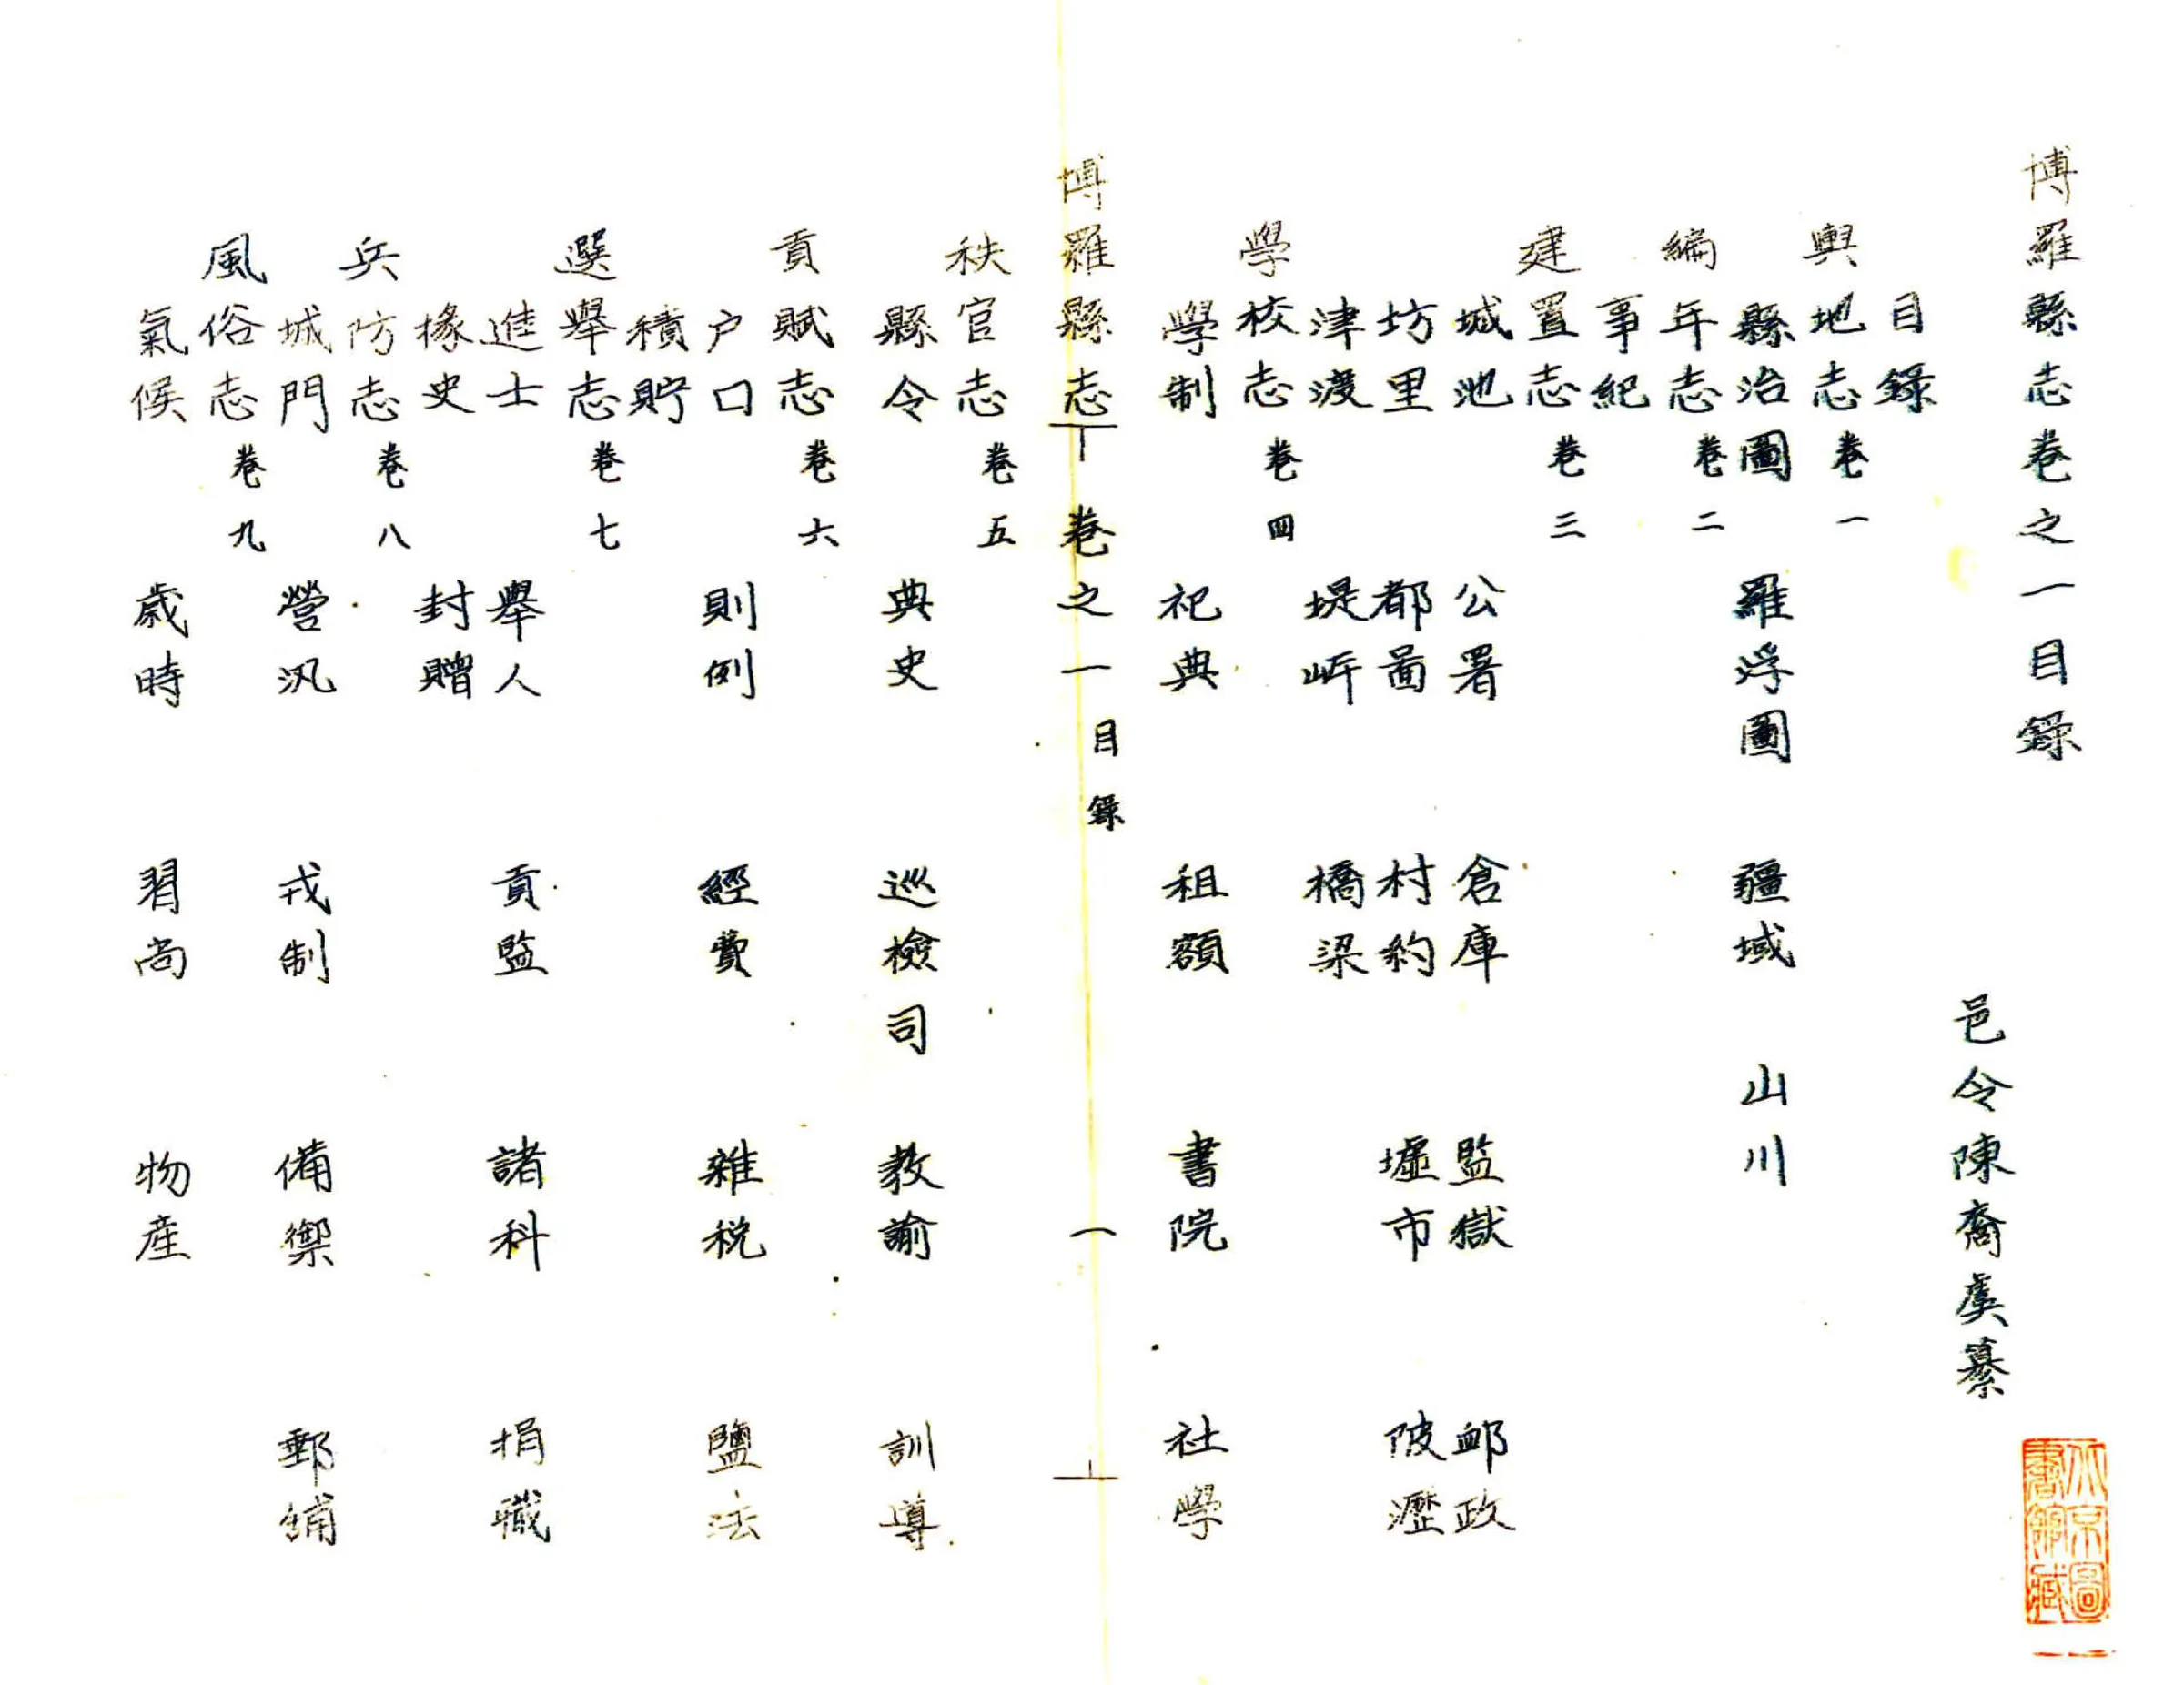 博羅縣志卷之一目錄
邑令陳裔虞纂
目錄
輿地志 卷一
縣治圖 羅浮圖 疆域 山川
編年志 卷二
事紀
建置志 卷三
城池 公署 倉庫 監獄 邮政
坊里 都啚 村約 墟市 陂瀝
津渡 堤岍 橋梁
學校志 卷四
學制 祀典 租額 書院 社學
博羅縣志 卷之一 目錄 一
秩官志 卷五
縣令 典史 巡檢司 教諭 訓導
貢賦志 卷六
户口 則例 經費 雜稅 鹽法
積貯
選舉志 卷七
進士 舉人 貢監 諸科 捐職
椽史 封贈
兵防志 卷八
城門 營汛 戎制 備禦 郵鋪
風俗志 卷九
氣候 歲時 習尚 物産
北京圖書館藏